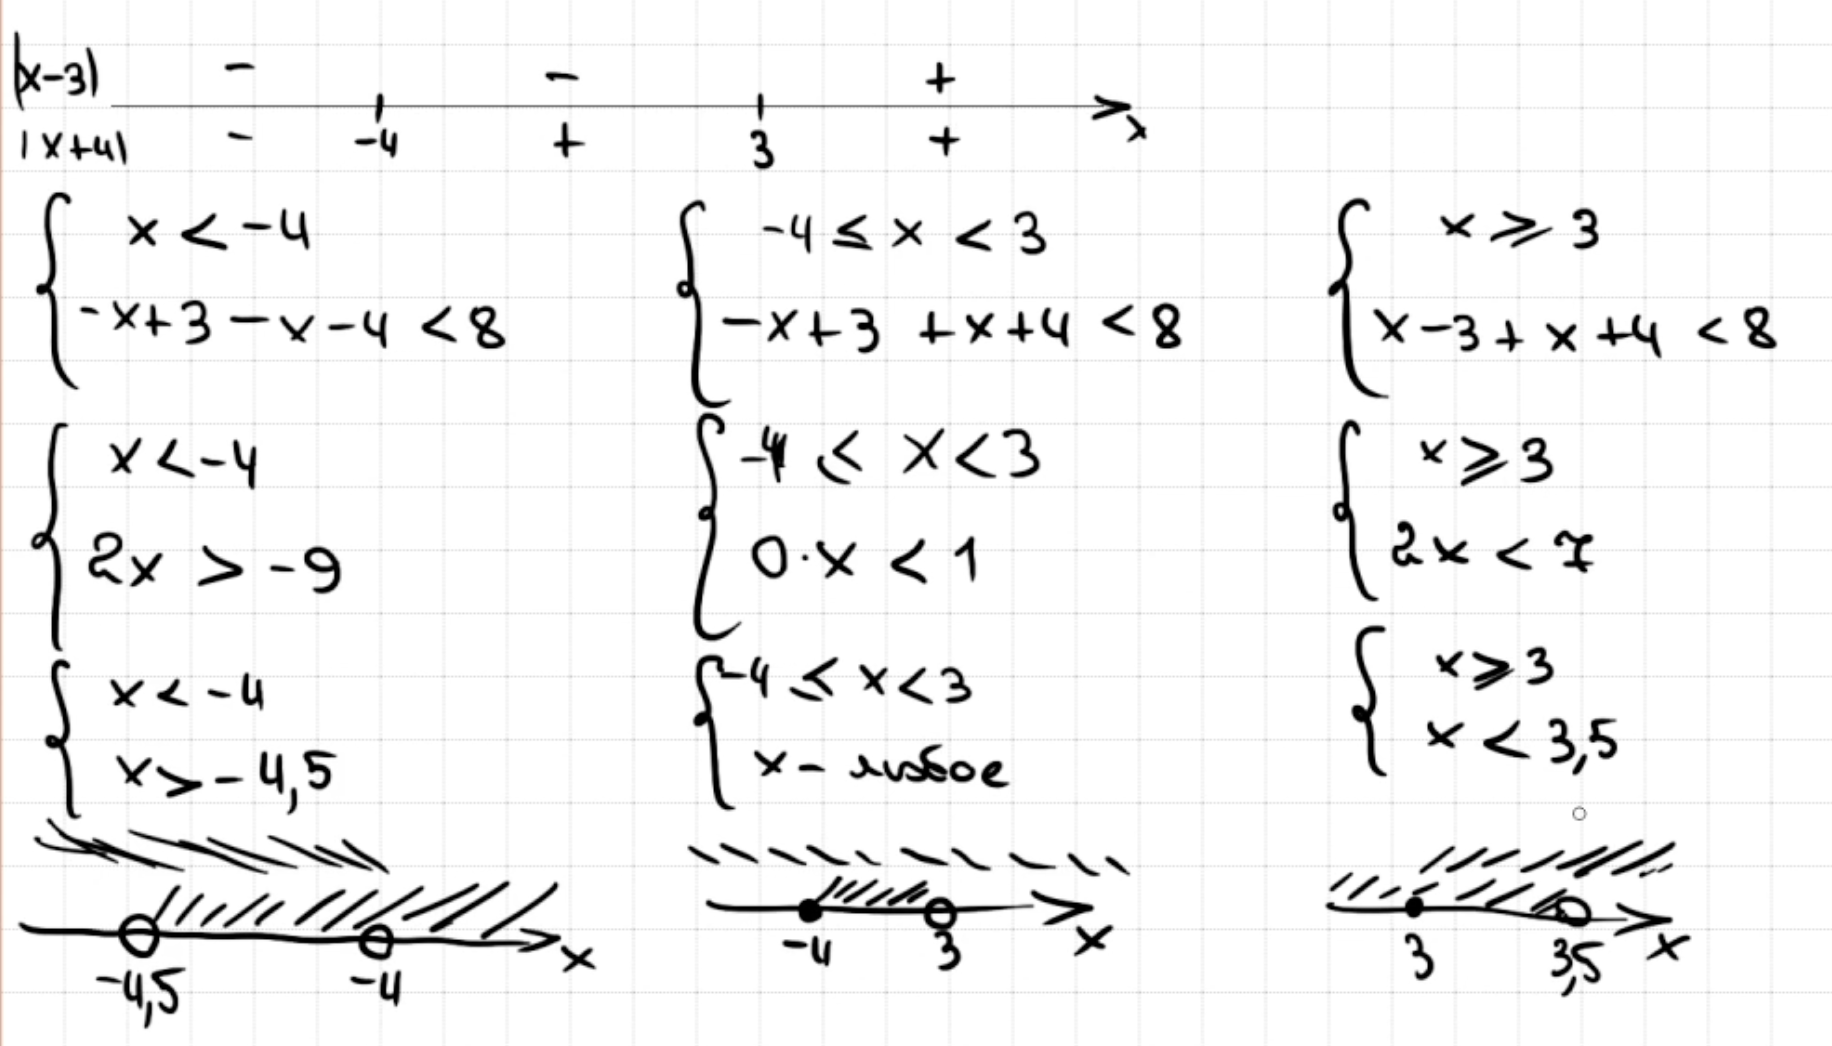 |x-3| - - +
-4 3 x
|x+4| - + +
x < -4
-x+3-x-4 < 8
x < -4
2x > -9
x < -4
x > -4,5
-4,5 -4 x
-4 ≤ x < 3
-x+3 +x+4 < 8
-4 ≤ x < 3
0·x < 1
-4 ≤ x < 3
x - любое
-4 3 x
x ⩾ 3
x-3+x+4 < 8
x ⩾ 3
2x < 7
x ⩾ 3
x < 3,5
3 3,5 x